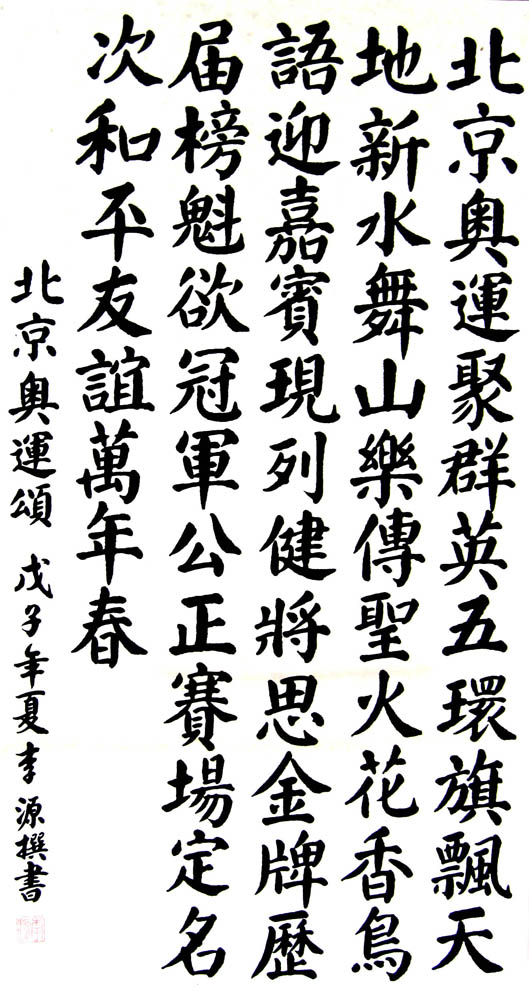 北京奥運聚群英五環旗飄天
地新水舞山樂傳聖火花香鳥
語迎嘉賓現列健將思金牌歷
届榜魁欲冠軍公正賽場定名
次和平友誼萬年春
北京奥運頌 戊子年夏李源撰書